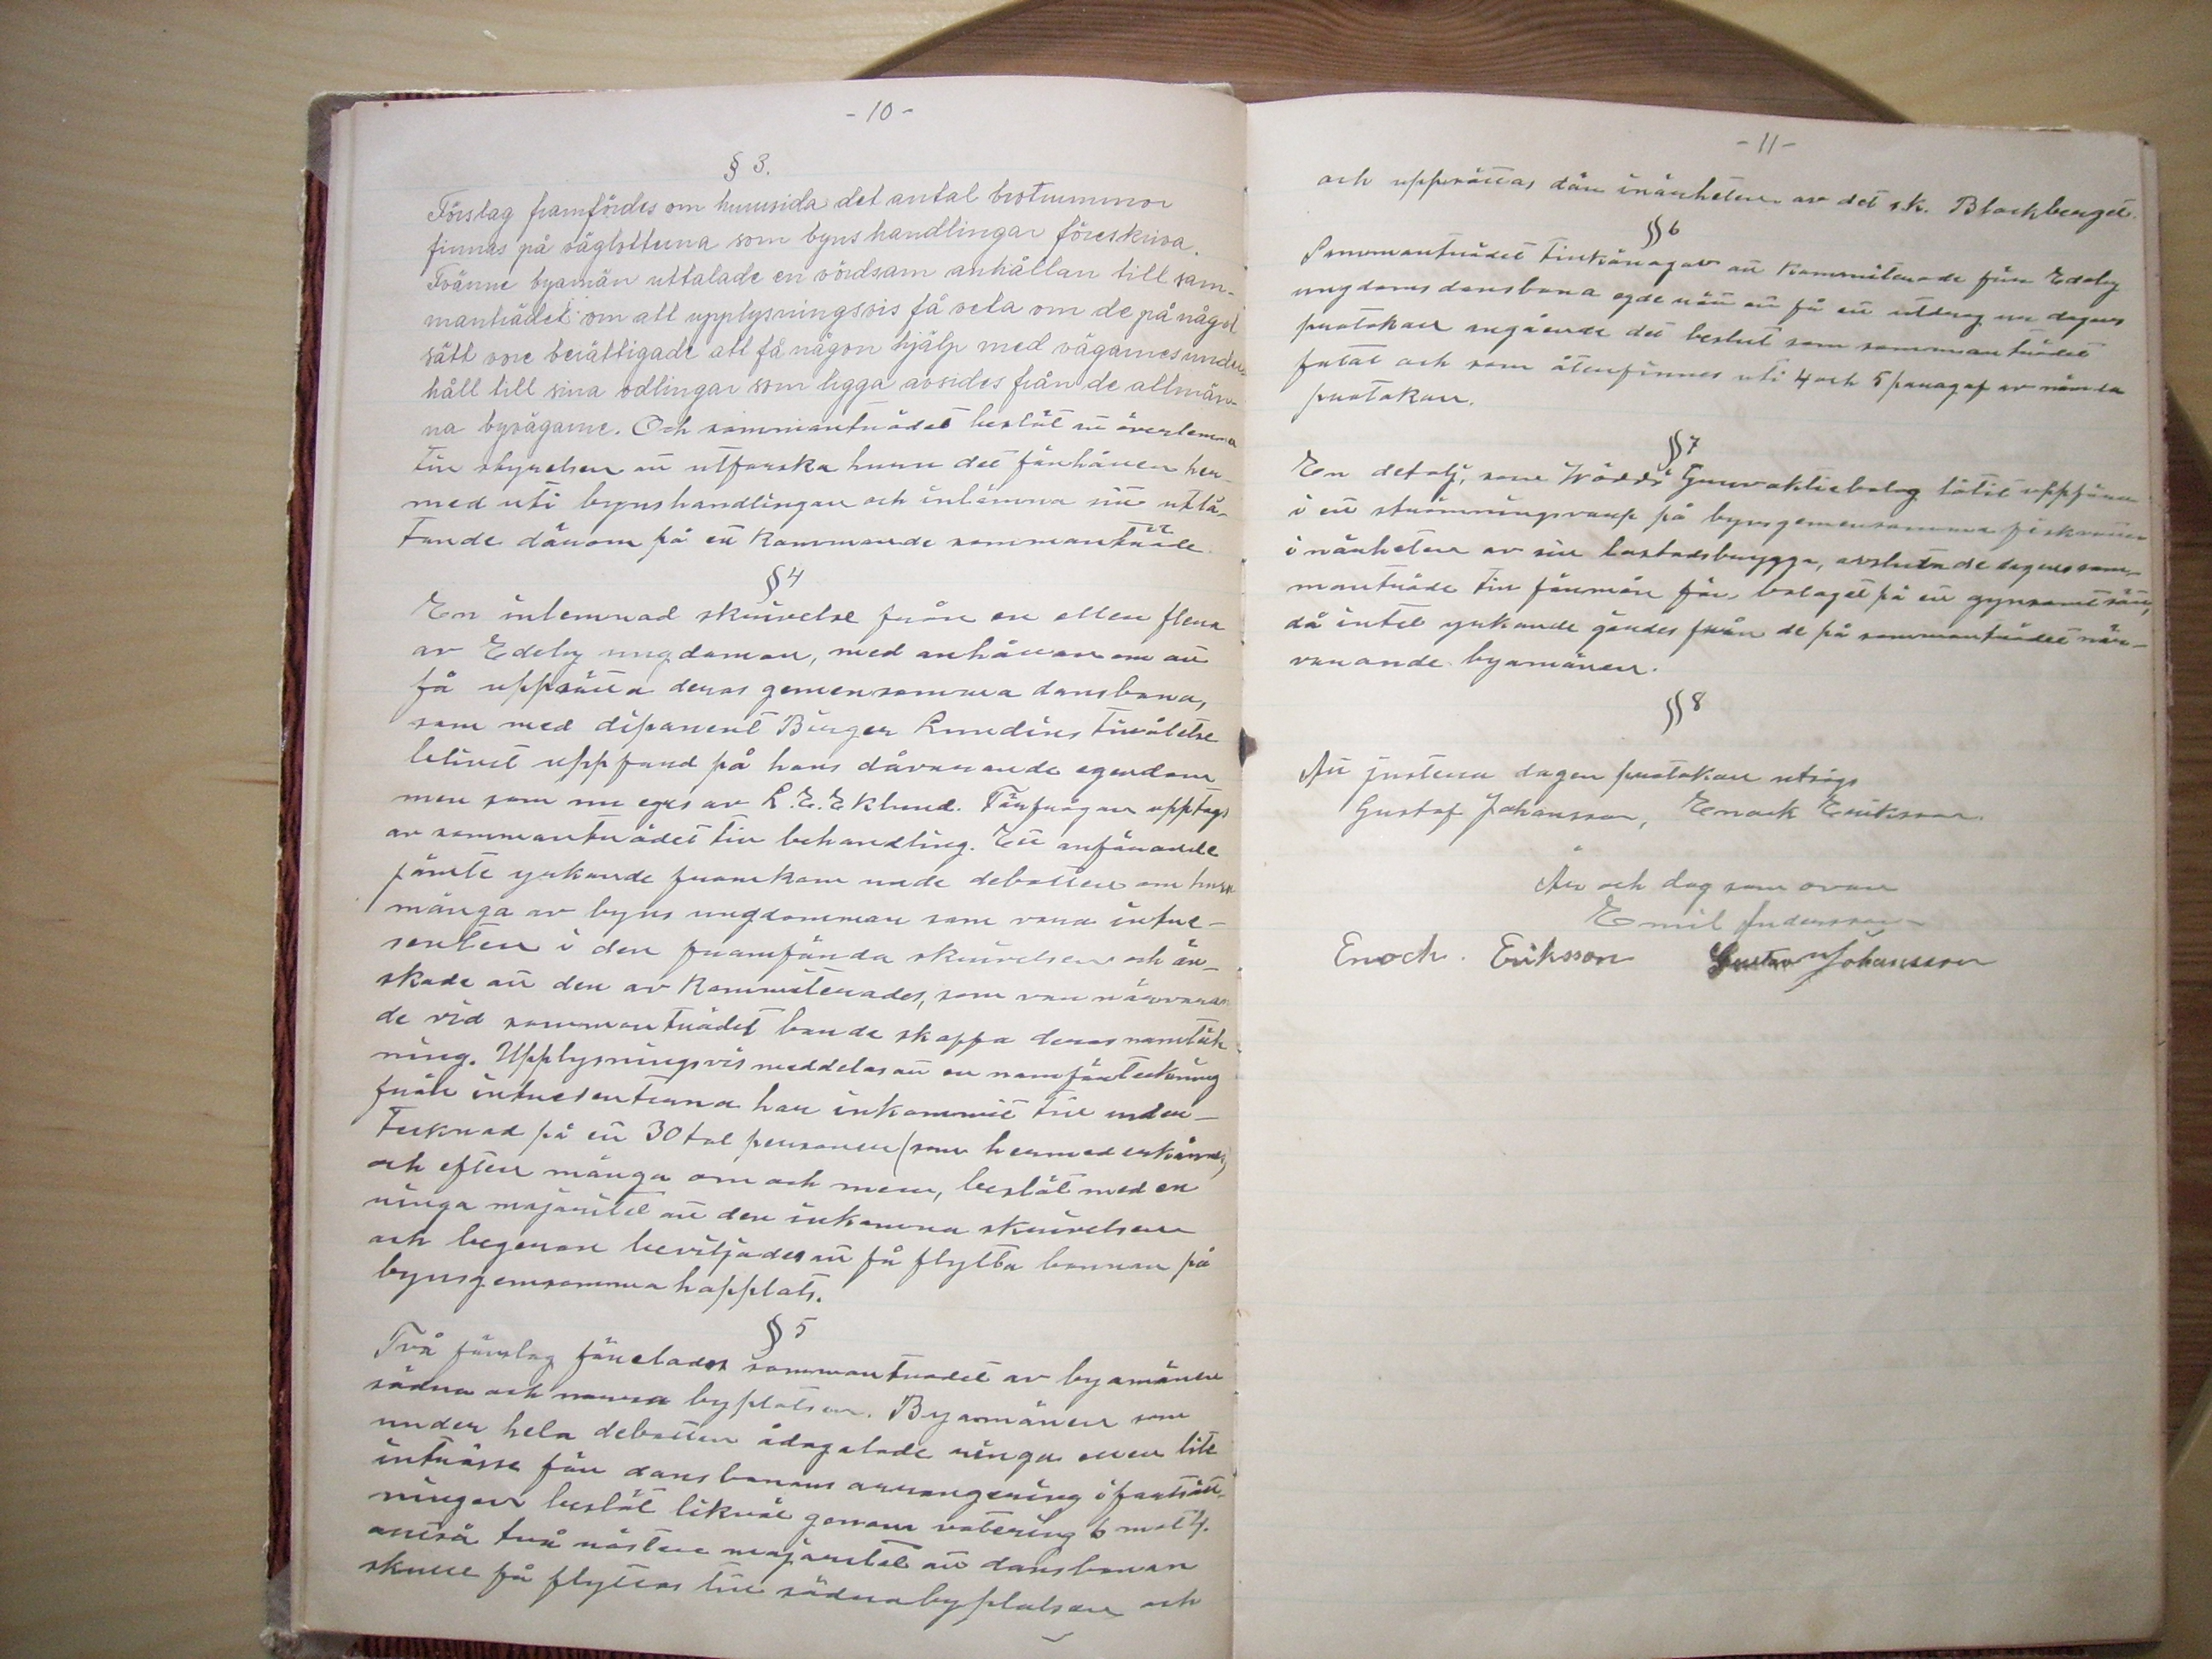 - 10 -
§ 3.
Förslag framfördes om huruvida det antal brotrummor
finnas på väglotterna som byns handlingar föreskriva.
Tvänne byamän uttalade en vördsam anhållan till sam-
manträdet om att upplysningsvis få veta om de på något
sätt vore berättigade att få någon hjälp med vägarnes under-
håll till sina odlingar som ligga avsides från de allmän-
na byvägarne. Och sammanträdet beslöt att överlemna
till styrelsen att utforska huru det förhåller her-
med uti byns handlingar och inlämna sitt utlå-
tande därom på ett kommande sammanträde.
§ 4
En inlemnad skrivelse från en eller flera
av Edeby ungdomar, med anhållan om att
få upprätta deras gemensamma dansbana,
som med diponent Birger Lundins tillåtelse
blivit uppförd på hans dåvarande egendom
men som nu eges av L. E. Eklund. Förfrågan upptogs
av sammanträdet till behandling. Ett anförande
jämte yrkande framkom unde debatten om huru
många av byns ungdommar som vara intre-
senter i den framförda skrivelsen och ön-
skade att den av kommiterades, som var närvaran
de vid sammanträdet borde skaffa deras namntäk
ning. Upplysningsvis meddelas att en namnförteckning
från intresenterna har inkommit till under-
tecknad på ett 30 tal personer (som hermed erkännes)
och efter många om och men, beslöt med en
ringa majoritet att den inkomna skrivelsen
och begeran beviljades att få flytta bannan på
byns gemsamma hopplats.
§ 5
Två förslag förelades sammanträdet av byamännen
södra och norra byplatsen. Byamännen som
under hela debatten ådagalade ringa eller lite
inträsse för dansbanans arrangering i fortsätt-
ningen beslöt likväl genom votering 6 mot 4.
alltså två röster majoritet att dansbanan
skulle få flyttas till södra byplatsen och
- 11 -
och upprättas där i närheten av det s.k. Blockberget.
§§ 6
Sammanträdet tillkänagav att kommiterade från Edeby
ungdoms dansbana egde rätt att få ett utdrag ur dagens
protokoll angående det beslut som sammanträdet
fattat och som återfinnes uti 4 och 5 paragraf av nämda
protokoll.
§§ 7
En detalj, som Gruvaktiebolag låtit uppföra
i ett strömningsvarp på byns gemensamma fiskvatten
i närheten av sin lastadsbrygga, avslutade dagens sam-
manträde till förmån för bolaget på ett gynsamt sätt,
då intet yrkande gjordes från de på sammanträdet när-
varande byamännen.
§§ 8
Att justera dagen protokoll utsågs
Gustaf Johansson, Enock Eriksson.
År och dag som ovan
Emil Andersson
Enoch Eriksson Gustav Johansson